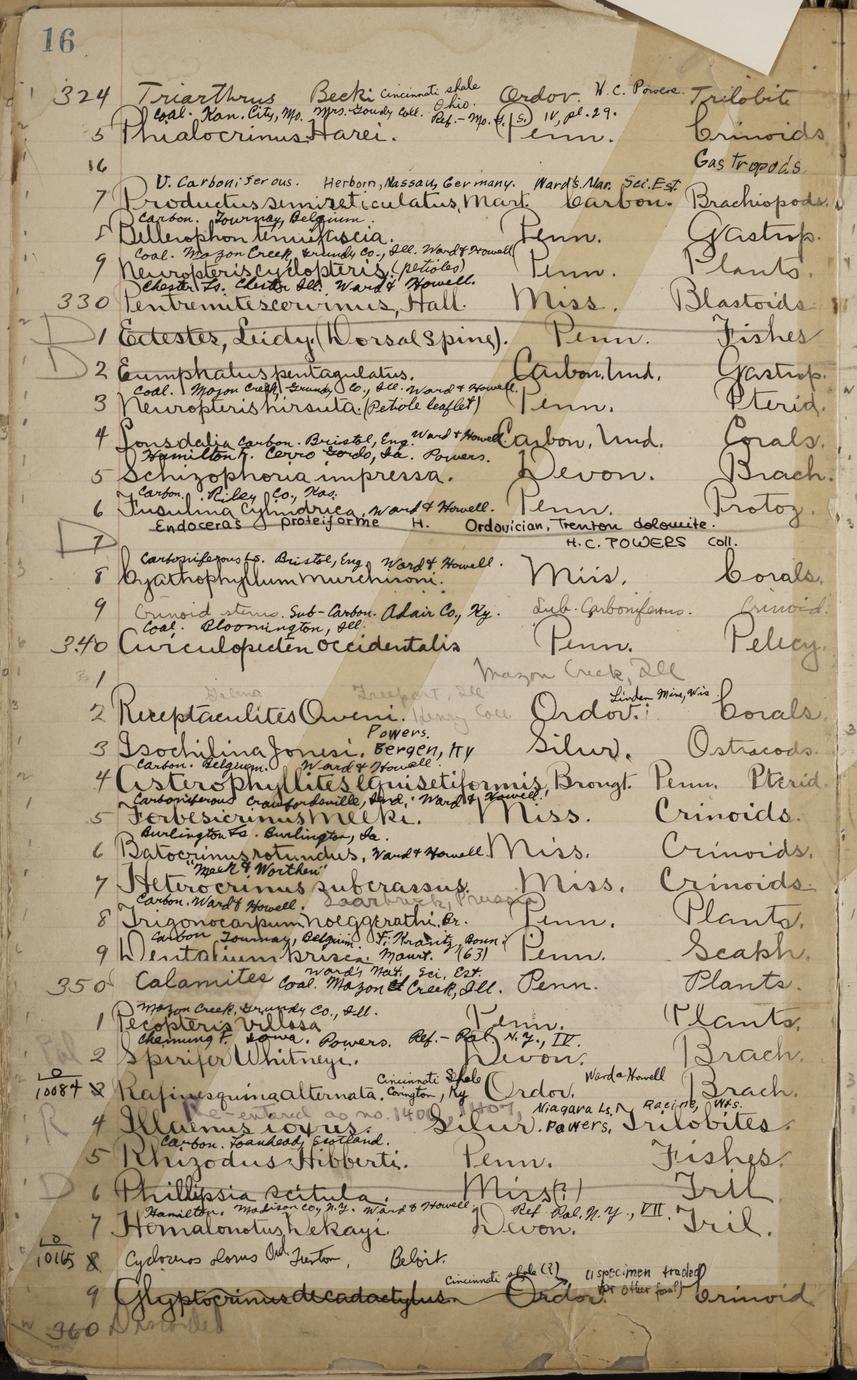 16
324 Triarthrus Becki Cincinnati shale Ohio. Ordov. H.C. Powers. Trilobite
Coal. Kan. City, Mo. Mrs. Goudy Coll. Ref. - Mo. G. S. IV, pl. 29.
5 Phialocrinus Harei. (Penn. Crinoids
16 Gastropods
U. Carboniferous. Herborn, Nassau, Germany. Ward's Nar. Sci. Est.
7 Productus semireticulatus, Mart. Carbon. Brachiopods.
Carbon. Tournay, Belgium.
8 Bellerophon tenuifascia. Penn. Gastrop.
Coal. Mazon Creek, Grundy Co., Ill. Ward & Howell
9 Neuropteris cyclopteris. (petioles) Penn. Plants.
Chester Ls. Chester Ill. Ward & Howell.
330 Pentremites cervinus, Hall. Miss. Blastoids.
D 1 Edestes, Leidy (Dorsal Spine). Penn. Fishes
D 2 Eumphalus pentagulatus. Carbon. Und. Gastrop.
Coal. Mazon Creek, Grundy Co., Ill. Ward & Howell.
3 Neuropteris hirsuta. (Petiole leaflet) Penn. Pterid.
4 Lonsdalia Carbon. Bristol, Eng. Ward & Howell Carbon. Und. Corals.
Hamilton F. Cerro Gordo, Ia. Powers.
5 Schizophoria impressa. Devon. Brach.
Carbon. Riley Co., Kas.
6 Fusulina Cylindrica, Ward & Howell. Penn. Protoz.
Endoceras proteiforme H. Ordovician, Trenton dolomite.
D 7 H.C. POWERS Coll.
Carboniferous Ls. Bristol, Eng. Ward & Howell.
8 Cyathophyllum Murchisoni. Miss. Corals.
9 Crinoid stems. Sub-Carbon. Adair Co., Ky. Sub-Carboniferous. Crinoid.
Coal. Bloomington, Ill.
340 Aviculopecten occidentalis Penn. Pelecy.
1 Mazon Creek, Ill
Galena Freeport, Ill Linden Mine, Wis
2 Receptaculites Oweni. Henry Coll Ordov. Corals.
Powers.
3 Isochilina Jonesi. Bergen, Ky Silur. Ostracods.
Carbon. Belgium. Ward & Howell.
4 Asterophyllites Equisetiformis, Brongt. Penn. Pterid.
Carboniferous Crawfordsville, Ind. Ward & Howell.
5 Forbesiocrinus Meeki. Miss. Crinoids.
Burlington Ls. Burlington, Ia.
6 Batocrinus rotundus, Ward & Howell Miss. Crinoids.
"Meek & Worthen"
7 Heterocrinus subcrassus. Miss. Crinoids.
Carbon. Ward & Howell. Saarbruck, Prussia
8 Trigonocarpum noeggerathi. Br. Penn. Plants.
Carbon Tournay, Belgium. F. Krantz, Bonn.
9 Dentalium prisca. Maurt. (63) Penn. Scaph.
Ward's Nat. Sci. Est.
350 Calamites Coal. Mazon Creek, Ill. Penn. Plants.
Mazon Creek, Grundy Co., Ill.
1 Pecopteris villosa Penn. Plants.
Chemung F. Iowa. Powers. Ref. - Pal. N.Y., IV.
Pal 2 Spirifer Whitneyi. Devon. Brach.
10084 Rafinesquina alternata. Cincinnati Shale Covington, Ky Ordov. Ward & Howell Brach.
Re-entered as no. 1400, 1407. Niagara Ls. Racine, Wis.
R 4 Illaenus ioxus. Silur. Powers. Trilobites.
Carbon. Loanhead, Scotland.
5 Rhizodus Hibberti. Penn. Fishes
D 6 Phillipsia scitula. Miss(?) Tril
Hamilton, Madison Co., N.Y. Ward & Howell. Ref. Pal. N.Y., VII.
7 Homalonotus Dekayi Devon. Tril.
10165 8 Cycloceras olorus Trenton, Beloit.
Cincinnati shale (?) (1 specimen traded for other fossil)
9 Glyptocrinus decadactylus. Ordov. Crinoid
360 Discarded